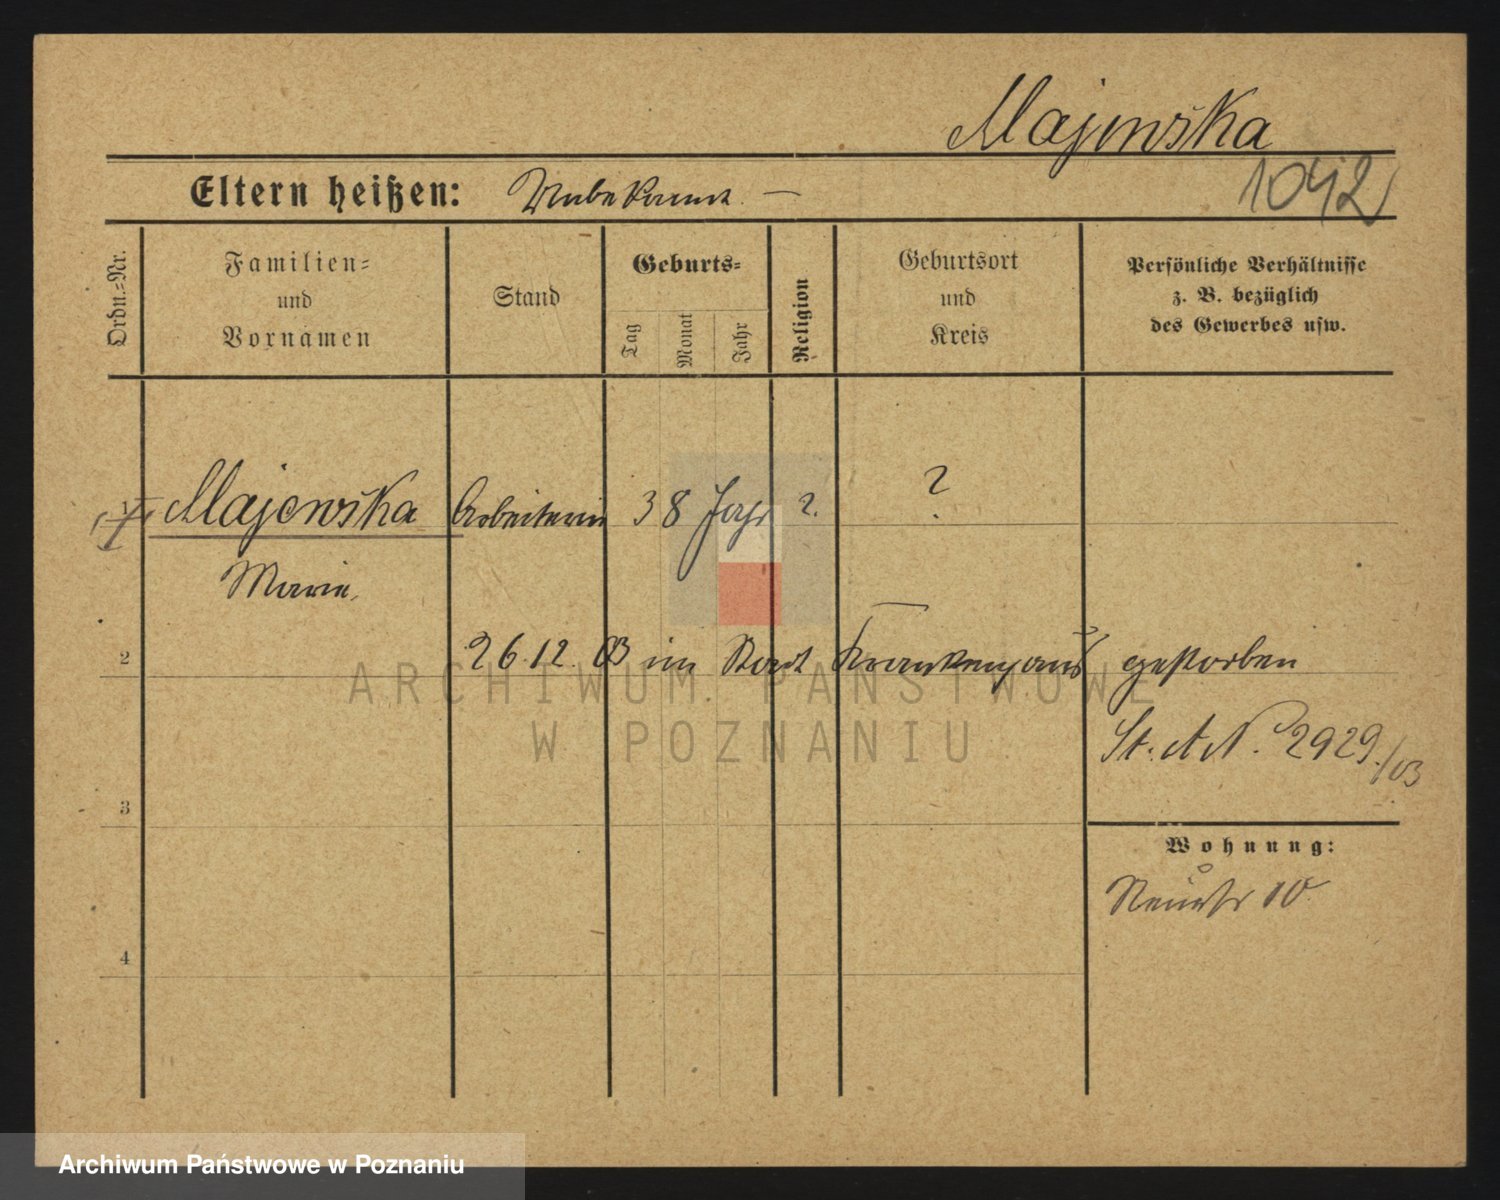 Majewska
Eltern heißen: Unbekannt. —
1042
Ordn.=Nr.
Familien=
und
Vornamen
Stand
Geburts=
Tag
Monat
Jahr
Religion
Geburtsort
und
Kreis
Persönliche Verhältnisse
z. B. bezüglich
des Gewerbes usw.
1 Majewska Arbeiterin 38 Jahr ?. ?
Marie.
2 26.12.03 im Stadt Krankenhaus gestorben
ARCHIWUM PAŃSTWOWE
W POZNANIU
St. A N. 2929./03
3
Wohnung:
Neuestr 10.
4
Archiwum Państwowe w Poznaniu